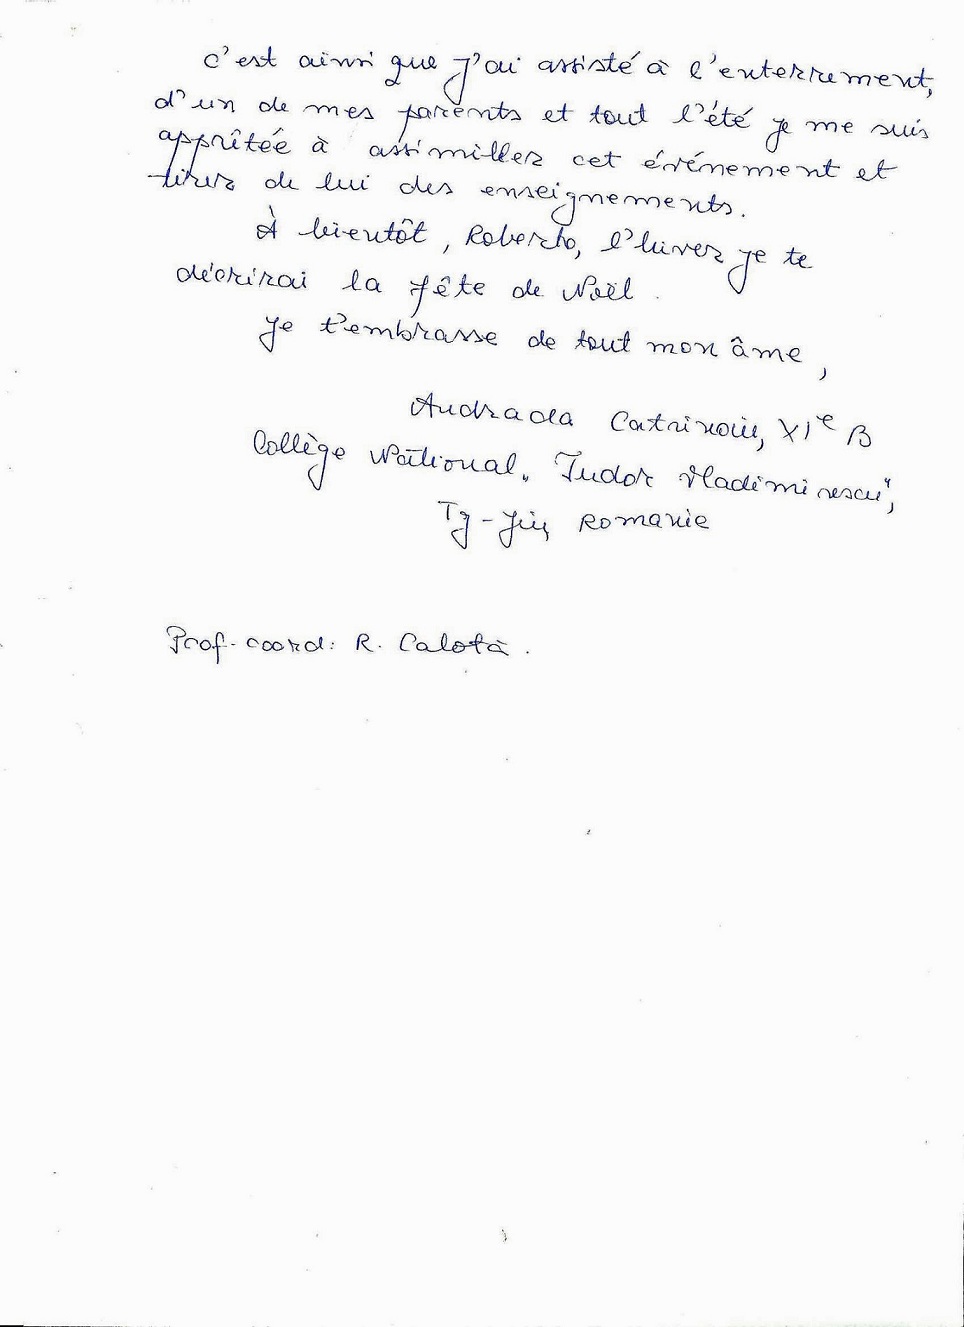 c'est ainsi que j'ai assisté à l'enterrement,
d'un de mes parents et tout l'été je me suis
apprêtée à assimiller cet événement et
tirer de lui des enseignements.
À bientôt, Roberto, l'hiver je te
décrirai la fête de Noël.
Je t'embrasse de tout mon âme,
Andrada Catrinoiu, XIe B
Collège National „Tudor Vladimirescu",
Tg-Jiu, Romanie
Prof. coord: R. Calotă.